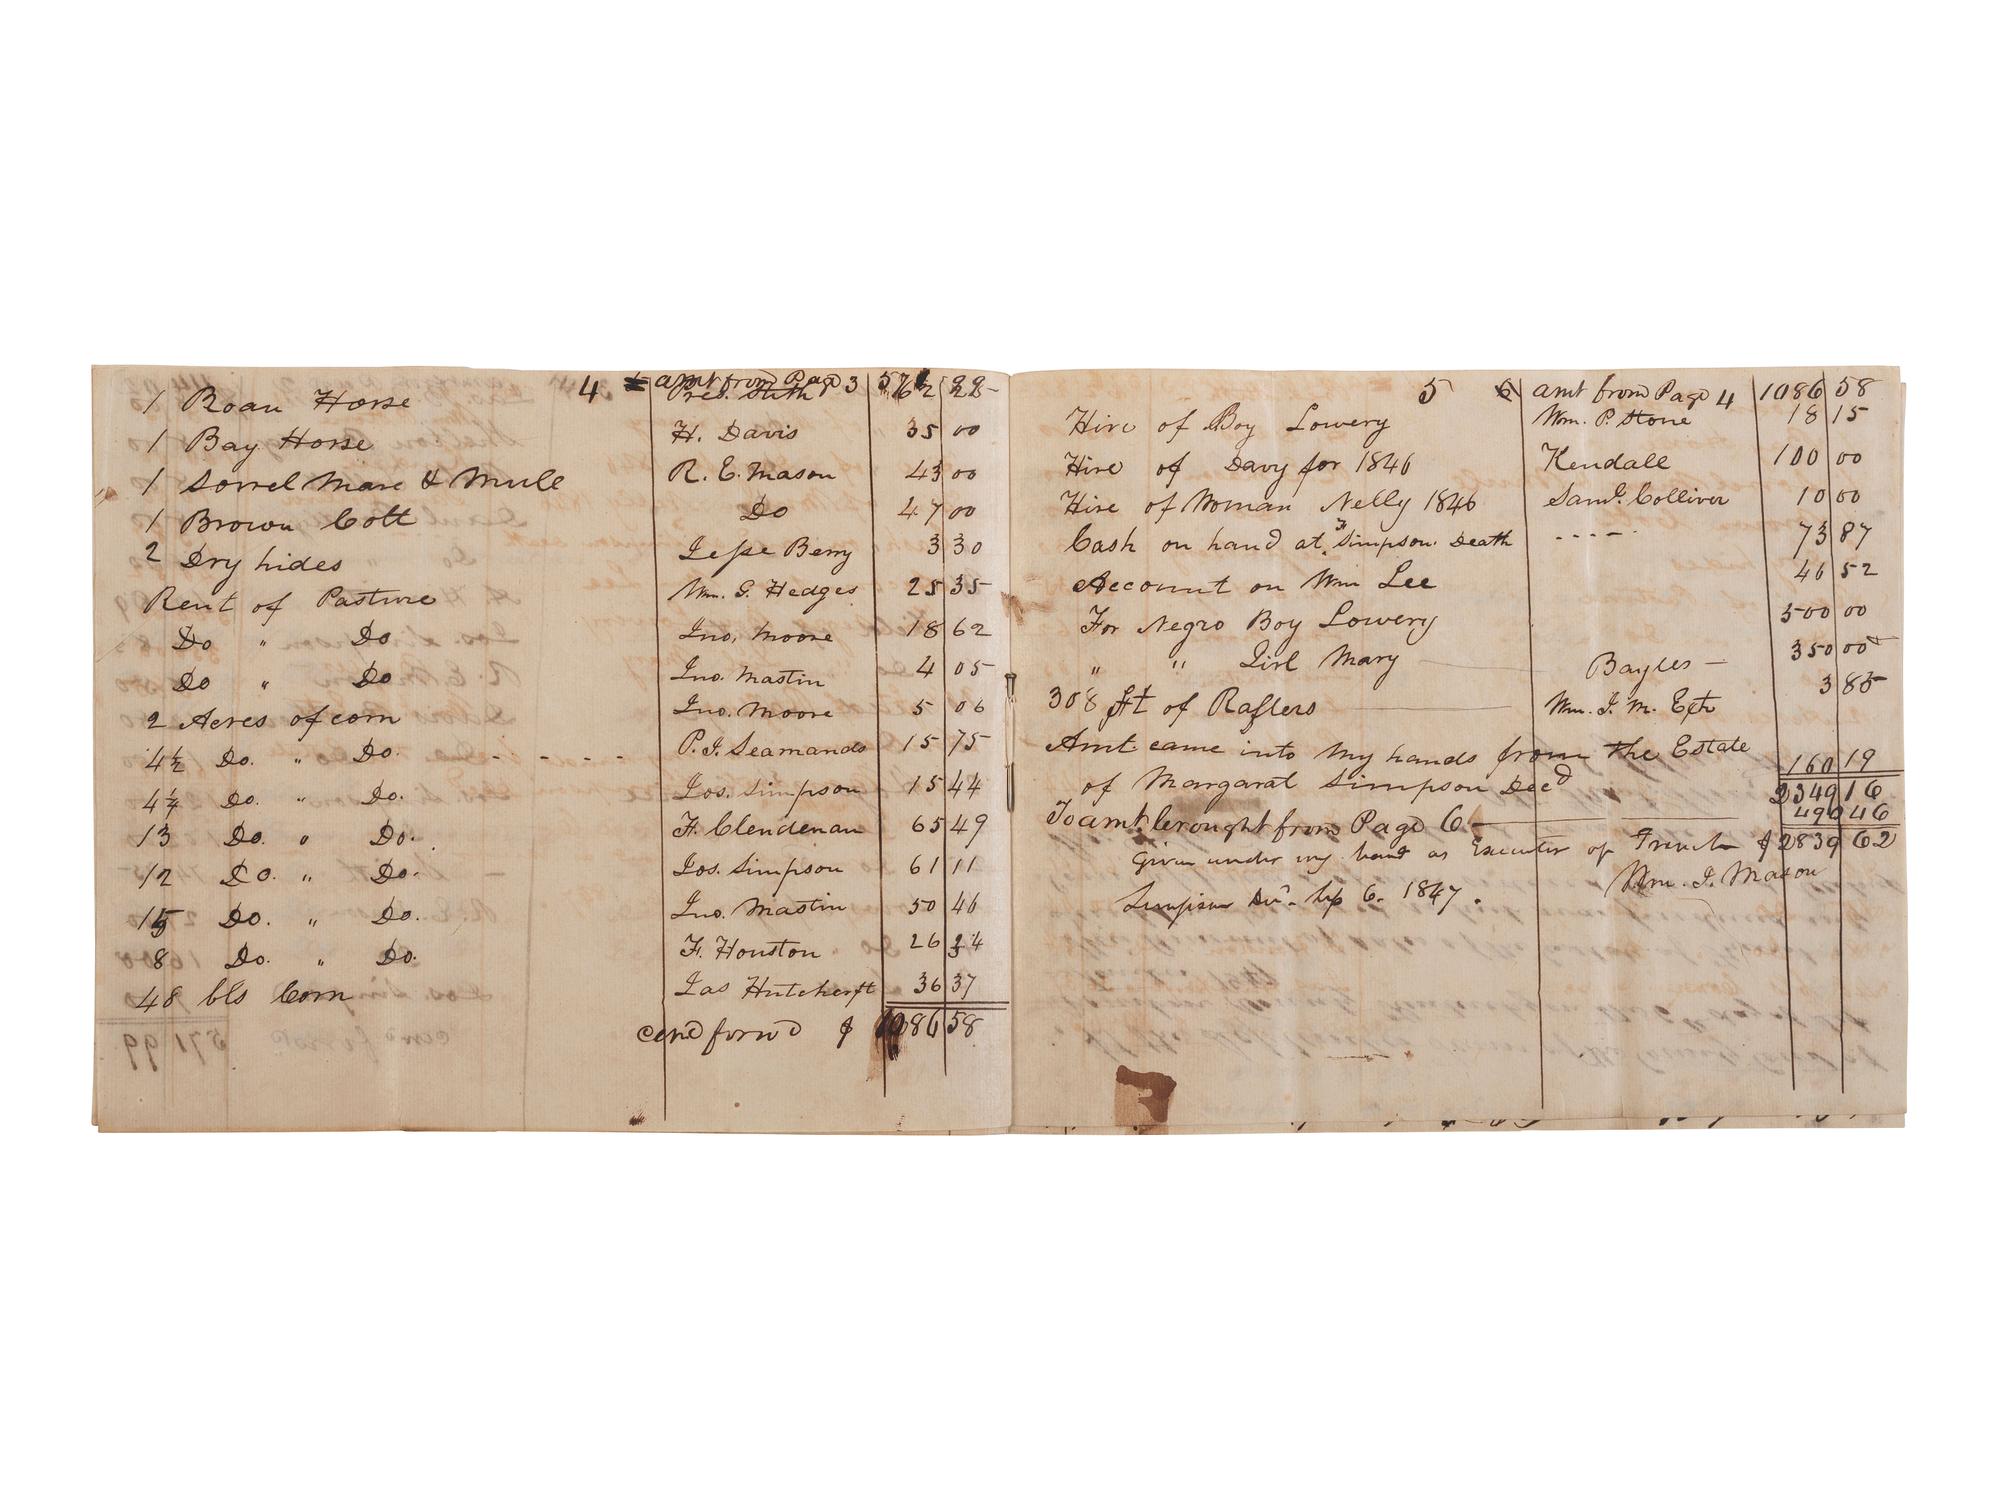 4 amt from Page 3
1 Roan Horse Pres. Stith
1 Bay Horse H. Davis 35 00
1 Sorrel Mare & Mule R. E. Mason 43 00
1 Brown Colt Do 47 00
2 Dry hides Jesse Berry 3 30
Rent of Pasture Wm. G. Hedges 25 35
Do " Do Jno. Moore 18 62
Do " Do Jno. Mastin 4 05
2 Acres of corn Jno. Moore 5 06
4½ Do. " Do. - - - - P. J. Seamands 15 75
4¼ Do. " Do. Jos. Simpson 15 44
13 Do. " Do. F. Clendenan 65 49
12 Do. " Do. Jos. Simpson 61 11
15 Do. " Do. Jno. Mastin 50 46
8 Do. " Do. F. Houston 26 34
48 bls Corn Jas Hutcherft 36 37
card forwd $ 1086 58
5 amt from Page 4 1086 58
Hire of Boy Lowery Wm. P. Stone 18 15
Hire of Davy for 1846 Kendall 100 00
Hire of Woman Nelly 1846 Saml. Colliver 10 00
Cash on hand at F Simpson. Death - - - - 73 87
Account on Wm Lee 46 52
For Negro Boy Lowery 500 00
" " Girl Mary Bayles - 350 00
308 ft of Rafters Wm. J. M. Extr 3 85
Amt. came into my hands from the Estate
of Margarat Simpson Decd 160 19
2349 16
To amt. brought from Page 6 490 46
Given under my hand as Executor of French $ 2839 62
Simpson Dec. Sep 6. 1847. Wm. J. Mason